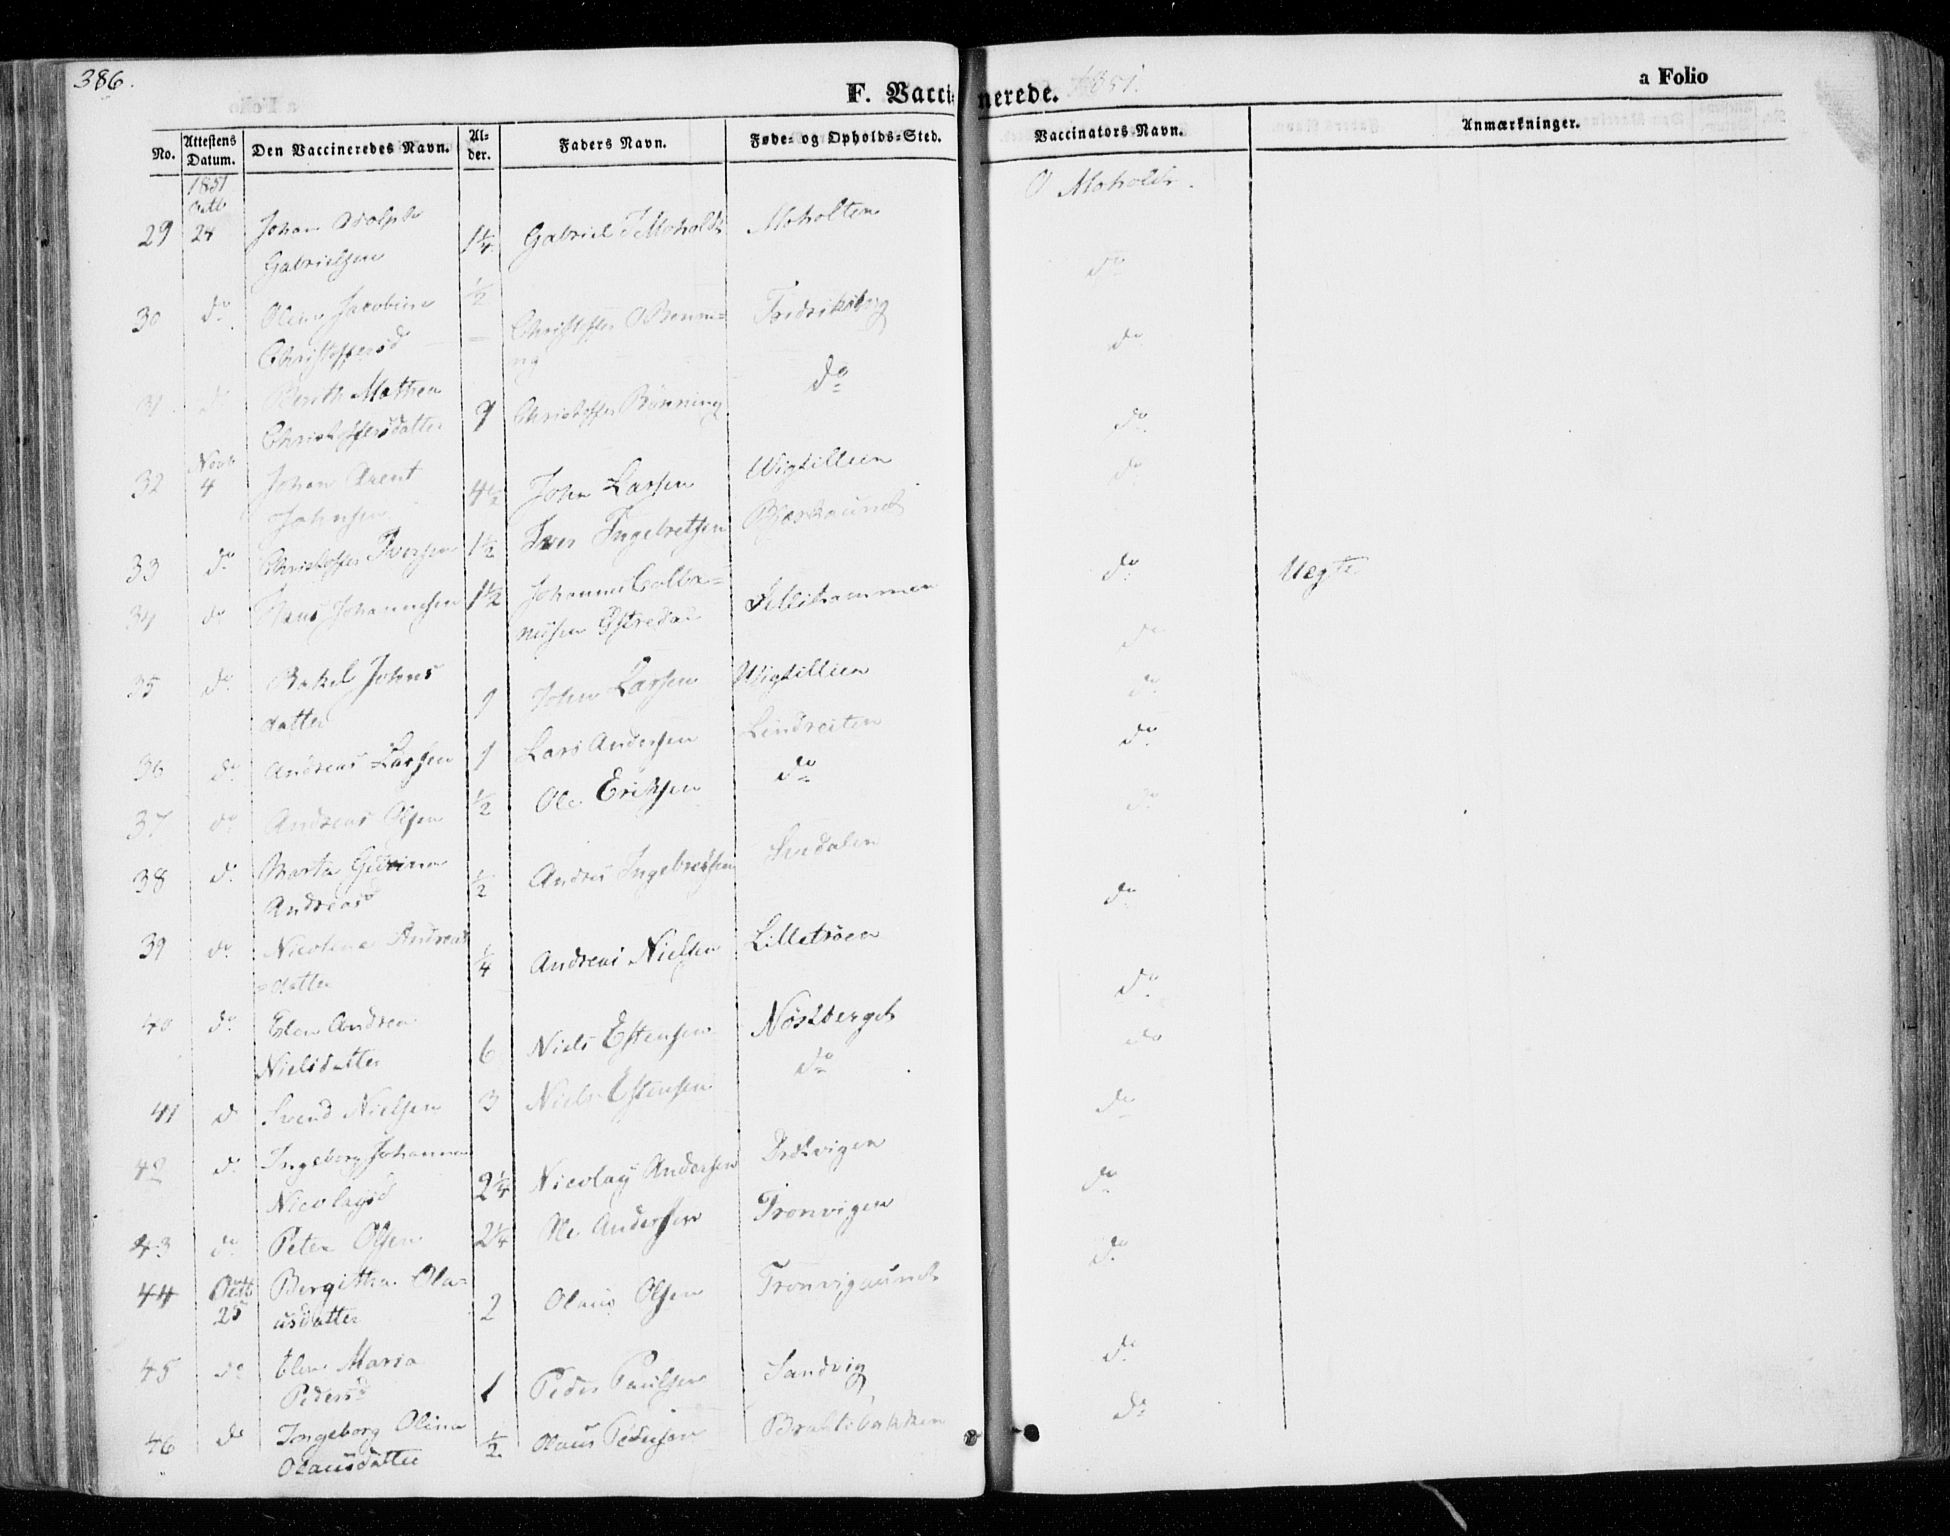 386.
F. Vaccinerede. 1851.
a Folio
No. Attestens Datum. Den Vaccineredes Navn. Alder. Faders Navn. Føde- og Opholds-Sted. Vaccinators Navn. Anmærkninger.
1851
Octb
29 24 Johan Adolph 1¼ Gabriel J Moholdt Moholten O Moholdt.
Gabrielsen
30 do Oline Jacobine ½ Christoffer Fredriksberg do
Christoffersd
31 do Bereth Mathea 9 Christoffer Rønning do do
Christoffersdatter
Novb
32 4 Johan Arent 4½ John Larsen Wigtillien do
Johnsen
33 do Christoffer Iversen 1½ Iver Ingebretsen do
34 do Hans Johannesen 1½ Johannes Lillihammen do Uægte
35 do Rakel Johns 9 John Larsen Wigtillien do
datter
36 do Andreas Larsen 1 Lars Andersen Lindreiten do
37 do Andreas Olsen ½ Ole Eriksen do do
38 do Marta ½ Andreas Ingebretsen do
Andreasd
39 do Nicoline Andreas ¼ Andreas Nielsen Lilletrøen do
datter
40 do Elen Andrea 6 Niels Estensen Nøstberget do
Nielsdatter
41 do Svend Nielsen 3 Niels Estensen do do
42 do Ingeborg Johanna 2¼ Nicolay Andersen do
Nicolaysd
43 do Peter Olsen 2¼ Ole Andersen Tronvigen do
44 Octb Bergitha Ola- 2 Olaus Olsen Tronvigaunet do
25 usdatter
45 do Elen Maria 1 Peder Paulsen Sandvig do
Pedersd
46 do Ingeborg Olina ½ Olaus Pedersen do
Olausdatter